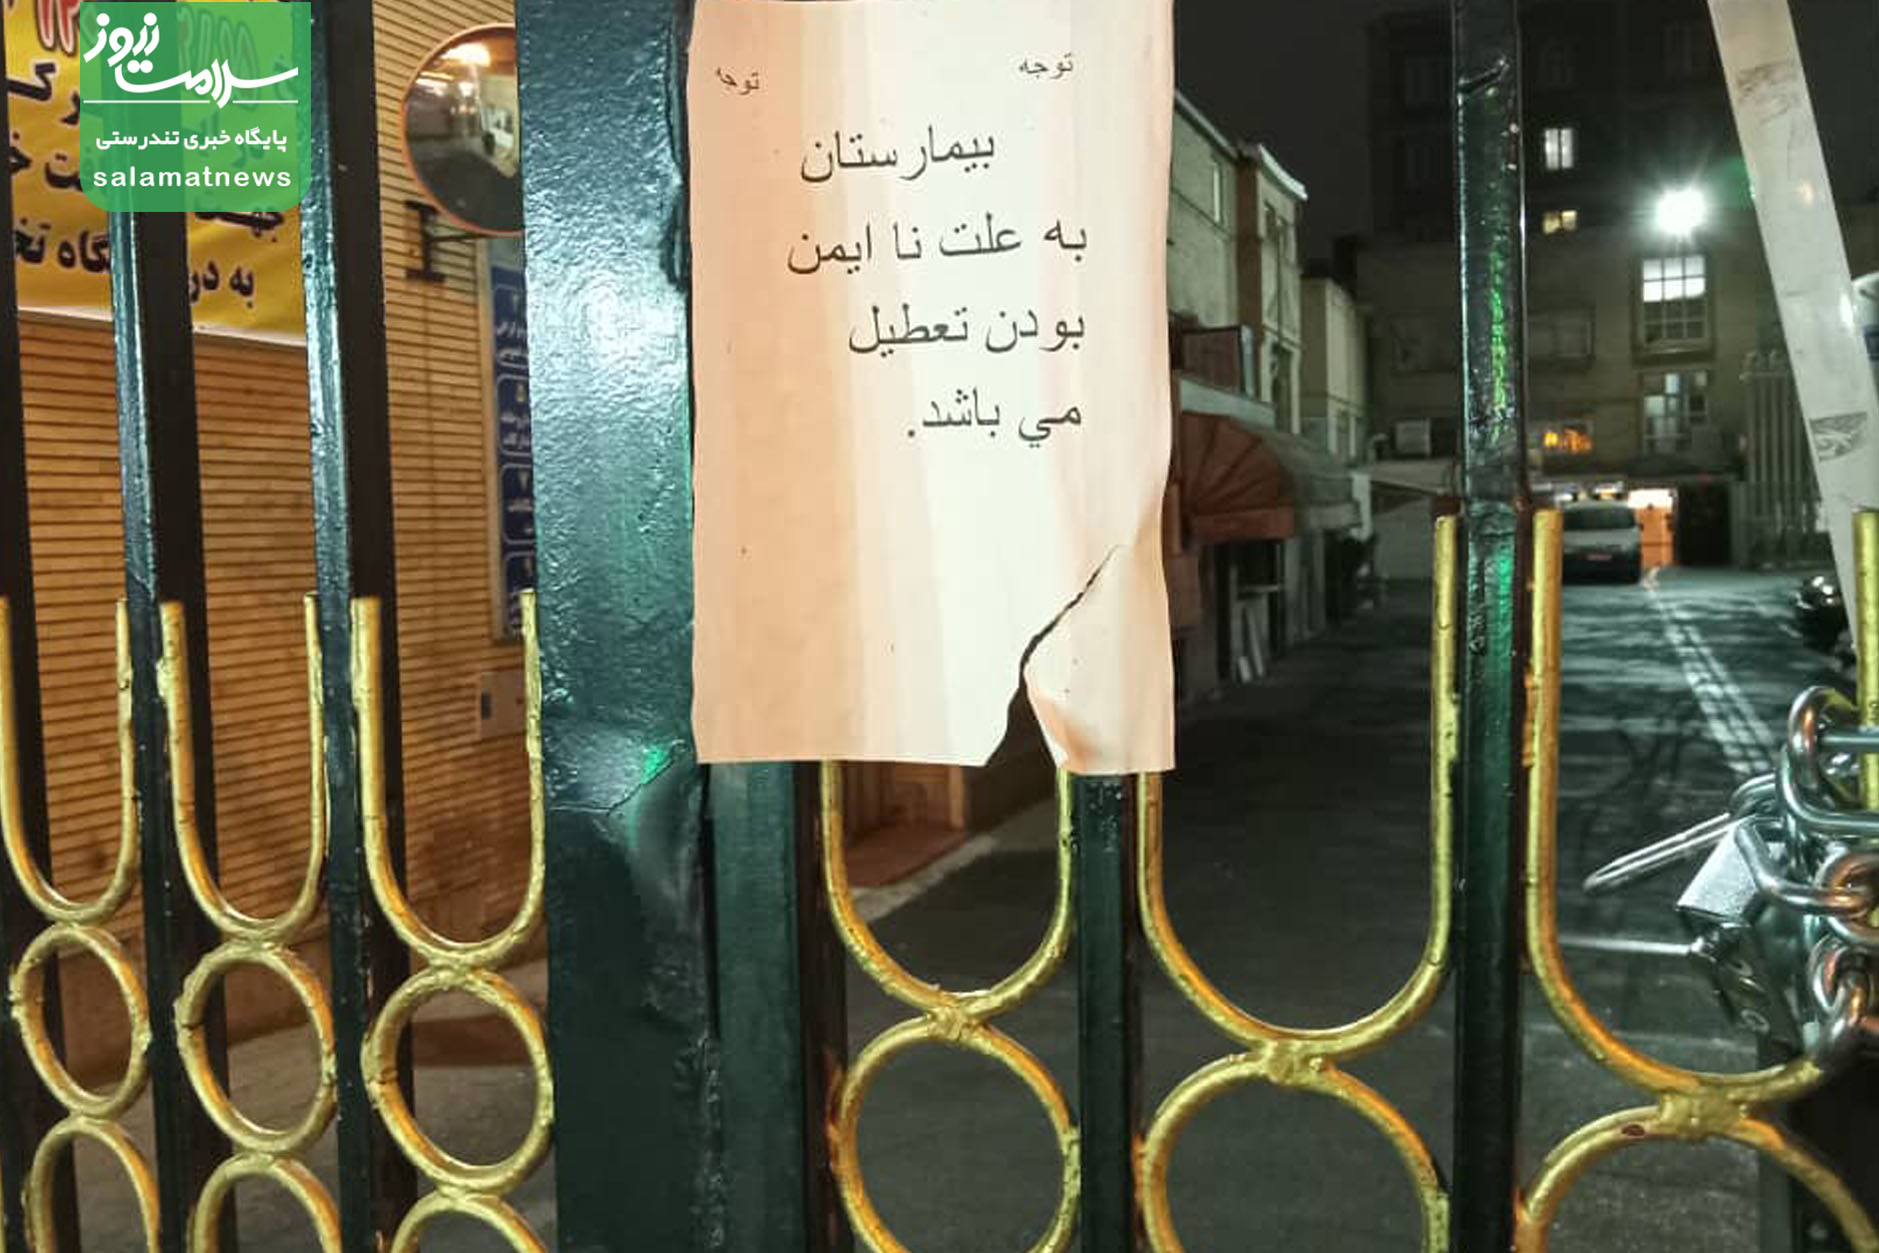 سلامت نیوز
پایگاه خبری تندرستی
salamatnews
توجه توجه
بیمارستان
به علت نا ایمن
بودن تعطیل
مي باشد.
به در